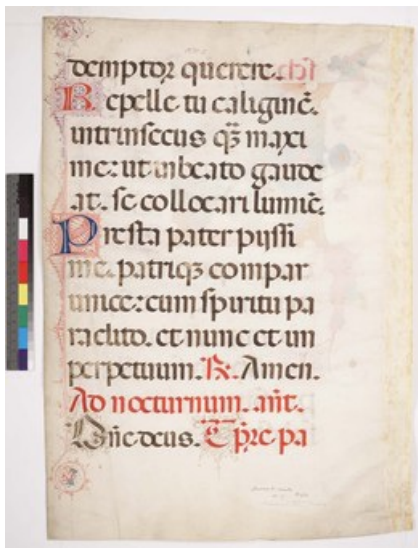 demptor querere.
Repelle tu caliginē.
intrinsecus qȝ maxi
me: ut in beato gaude
at. se collocari lumīe.
Presta pater pijssi
me. patriqȝ compar
unice: cum spiritu pa
raclito. et nunc et un
perpetuum. ℟. Amen.
Ad nocturnum. añt.
Dñe deus. T̄ pr̄e pa